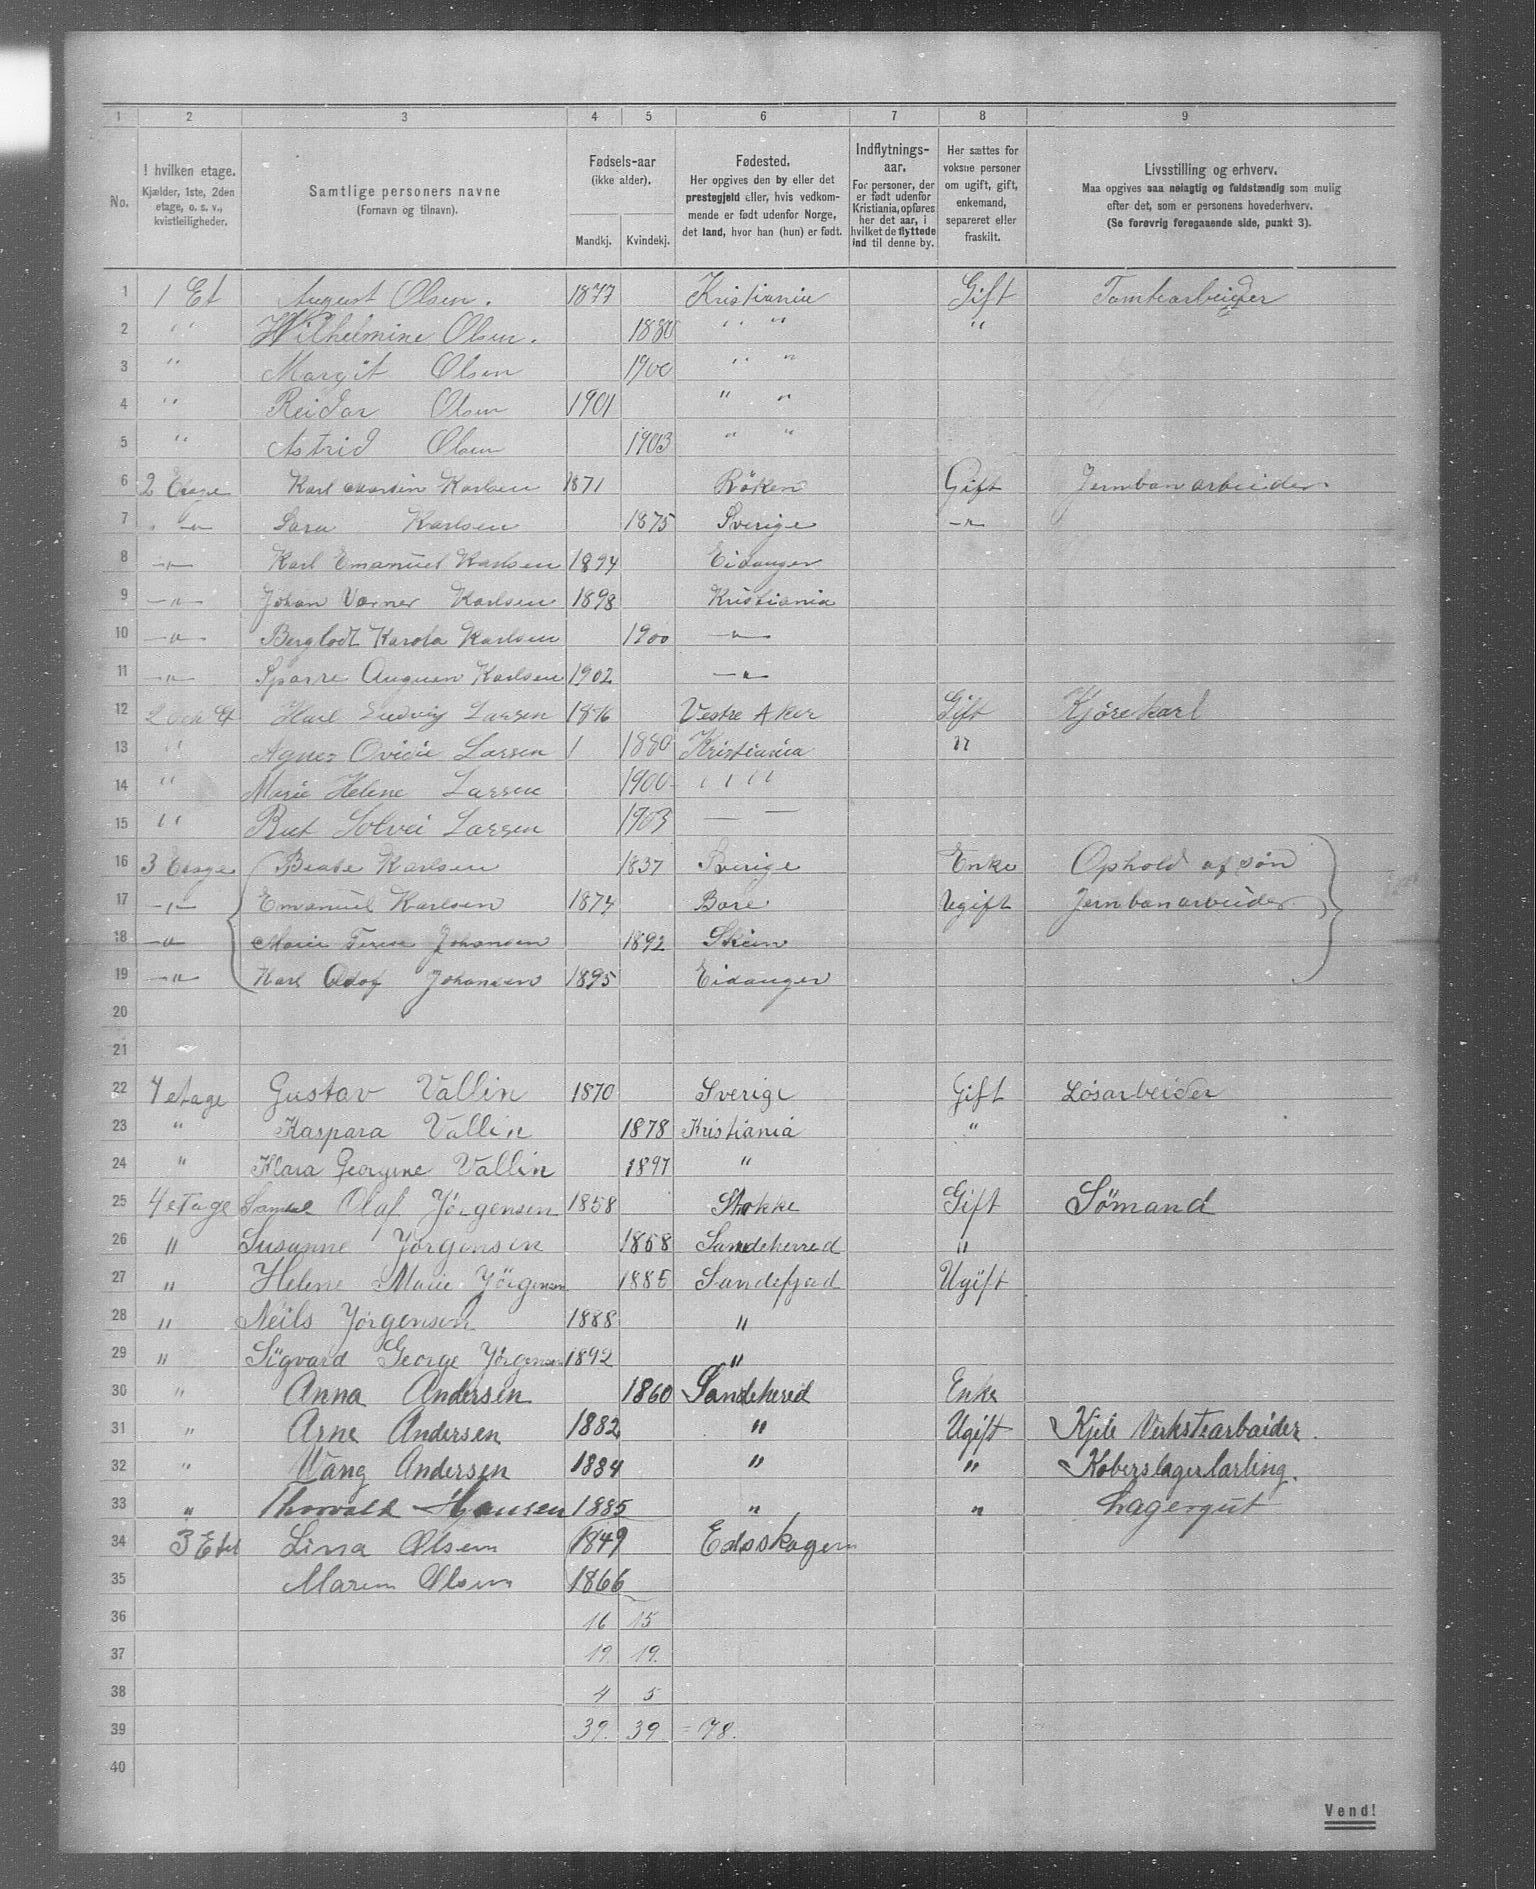 1 2 3 4 5 6 7 8 9
No.
I hvilken etage.
Kjælder, 1ste, 2den
etage, o. s. v.,
kvistleiligheder.
Samtlige personers navne
(Fornavn og tilnavn).
Fødsels-aar
(ikke alder).
Mandkj. Kvindekj.
Fødested.
Her opgives den by eller det
prestegjeld eller, hvis vedkom-
mende er født udenfor Norge,
det land, hvor han (hun) er født.
Indflytnings-
aar.
For personer, der
er født udenfor
Kristiania, opføres
her det aar, i
hvilket de flyttede
ind til denne by.
Her sættes for
voksne personer
om ugift, gift,
enkemand,
separeret eller
fraskilt.
Livsstilling og erhverv.
Maa opgives saa nøiagtig og fuldstændig som mulig
efter det, som er personens hovederhverv.
(Se forøvrig foregaaende side, punkt 3).
1 1 Et August Olsen. 1877 Kristiania Gift Tomtearbeider
2 " Wilhelmine Olsen. 1880 " " "
3 " Margit Olsen 1900 " "
4 " Reidar Olsen 1901 " "
5 " Astrid Olsen 1903 " "
6 2 Etage Karl Karlsen 1871 Röken Gift Jernbanarbeider
7 " Sara Karlsen 1875 Sverige "
8 " Karl Emanuel Karlsen 1894 Eidanger
9 " Johan Varner Karlsen 1898 Kristiania
10 " Berglodt Karola Karlsen 1900 "
11 " Sparre Karlsen 1902 "
12 2 Ludvig Larsen 1876 Vestre Aker Gift Kjørekarl
13 " Agnes Larsen 1880 Kristiania "
14 " Marie Helene Larsen 1900 " "
15 " Rut Solvei Larsen 1903 — —
16 3 Etage Beate Karlsen 1837 Sverige Enke Ophold af søn
17 " Emanuel Karlsen 1874 Bare Ugift Jernbanarbeider
18 " Marie Terese Johansen 1892 Skien
19 " Karl Johansen 1895 Eidanger
20
21
22 4 etage Gustav Vallin 1870 Sverige Gift Løsarbeider
23 " Kaspara Vallin 1878 Kristiania "
24 " Klara Georgine Vallin 1897 "
25 4 etage Olaf Jörgensen 1858 Stokke Gift Sömand
26 " Susanne Jörgensen 1858 Sandeherred "
27 " Helene Marie Jörgensen 1885 Sandefjord Ugift
28 " Neils Jörgensen 1888 "
29 " Sigvard George Jörgensen 1892 "
30 " Anna Andersen 1860 Sandehered Enke
31 " Arne Andersen 1882 " Ugift Kjele Verkstearbaider.
32 " Vang Andersen 1884 " " Koberslagerlarling.
33 " Thorvald Hansen 1885 " " Lagergut
34 3 Lina Olsen 1849 Edsskogen
35 Maren Olsen 1866
36 16 15
37 19. 19.
38 4 5
39 39. 39 = 78.
40
Vend!